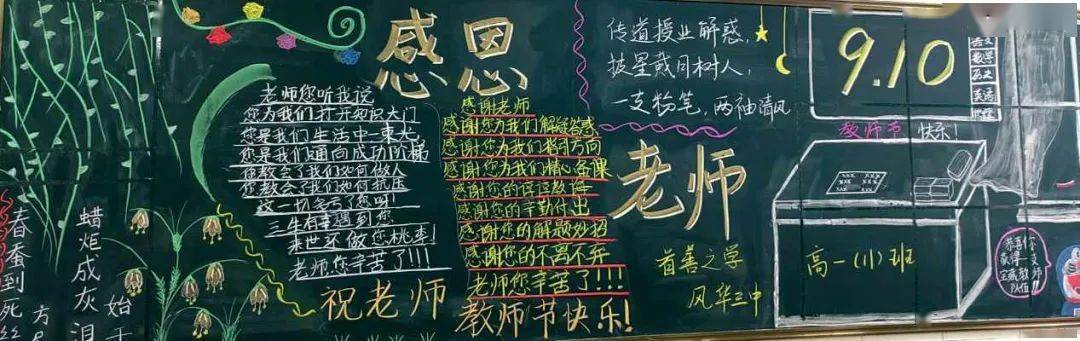 春蚕到死丝方
蜡炬成灰泪始干
感恩
老师您听我说
您为我们打开知识大门
您是我们生活中一束光,
您是我们通向成功阶梯
您教会了我们如何做人
您教会了我们如何抗压
这一切多亏了您啊!
三生有幸遇到您
来世还做您桃李!
老师您辛苦了!!!
祝老师
感谢老师
感谢您为我们解惑答惑
感谢您为我们指引方向
感谢您为我们精心备课
感谢您的谆谆教诲
感谢您的辛勤付出
感谢您的解题妙招
感谢您的不离不弃
老师您辛苦了!!!
教师节快乐!
传道授业解惑,
披星戴月树人,
一支粉笔,两袖清风
老师
首善之学
风华三中
9.10
语文
数学
历史
英语
教师节 快乐!
高一(11)班
恭喜你
获得一支
宝藏教师
队伍!!!